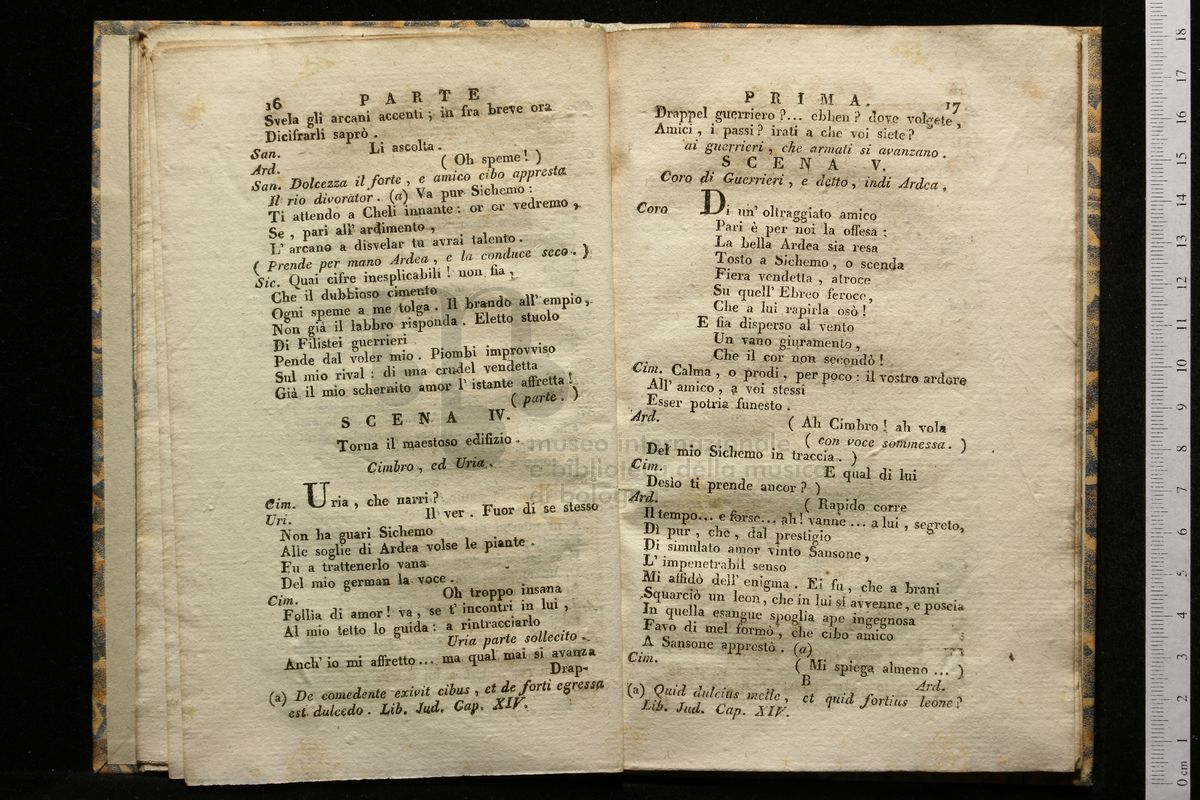 16 PARTE
Svela gli arcani accenti ; in fra breve ora
Dicifrarli saprò .
San. Li ascolta .
Ard. ( Oh speme ! )
San. Dolcezza il forte , e amico cibo appresta
Il rio divorator . (a) Va pur Sichemo :
Ti attendo a Cheli innante : or or vedremo ,
Se , pari all' ardimento ,
L' arcano a disvelar tu avrai talento .
( Prende per mano Ardea , e la conduce seco . )
Sic. Quai cifre inesplicabili ! non fia ,
Che il dubbioso cimento
Ogni speme a me tolga . Il brando all' empio ,
Non già il labbro risponda . Eletto stuolo
Di Filistei guerrieri
Pende dal voler mio . Piombi improvviso
Sul mio rival : di una crudel vendetta
Già il mio schernito amor l' istante affretta !
( parte . )
SCENA IV.
Torna il maestoso edifizio .
Cimbro , ed Uria .
Cim. Uria , che narri ?
Uri. Il ver . Fuor di se stesso
Non ha guari Sichemo
Alle soglie di Ardea volse le piante .
Fu a trattenerlo vana
Del mio german la voce .
Cim. Oh troppo insana
Follia di amor ! va , se t' incontri in lui ,
Al mio tetto lo guida : a rintracciarlo
Uria parte sollecito .
Anch' io mi affretto ... ma qual mai si avanza
Drap-
(a) De comedente exivit cibus , et de forti egressa
est dulcedo . Lib. Jud. Cap. XIV.
PRIMA. 17
Drappel guerriero ?... ebben ? dove volgete ,
Amici , i passi ? irati a che voi siete ?
ai guerrieri , che armati si avanzano .
SCENA V.
Coro di Guerrieri , e detto , indi Ardea .
Coro Di un' oltraggiato amico
Pari è per noi la offesa :
La bella Ardea sia resa
Tosto a Sichemo , o scenda
Fiera vendetta , atroce
Su quell' Ebreo feroce ,
Che a lui rapirla osò !
E fia disperso al vento
Un vano giuramento ,
Che il cor non secondò !
Cim. Calma , o prodi , per poco : il vostro ardore
All' amico , a voi stessi
Esser potria funesto .
Ard. ( Ah Cimbro ! ah vola
( con voce sommessa . )
Del mio Sichemo in traccia . )
Cim. E qual di lui
Desio ti prende ancor ? )
Ard. ( Rapido corre
Il tempo ... e forse ... ah ! vanne ... a lui , segreto,
Di pur , che , dal prestigio
Di simulato amor vinto Sansone ,
L' impenetrabil senso
Mi affidò dell' enigma . Ei fu , che a brani
Squarciò un leon , che in lui si avvenne , e poscia
In quella esangue spoglia ape ingegnosa
Favo di mel formò , che cibo amico
A Sansone apprestò . (a)
Cim. ( Mi spiega almeno ... )
B Ard.
(a) Quid dulcius melle , et quid fortius leone ?
Lib. Jud. Cap. XIV.
museo internazionale
e biblioteca della musica
di bologna
18
17
16
15
14
13
12
11
10
9
8
7
6
5
4
3
2
1
0 cm